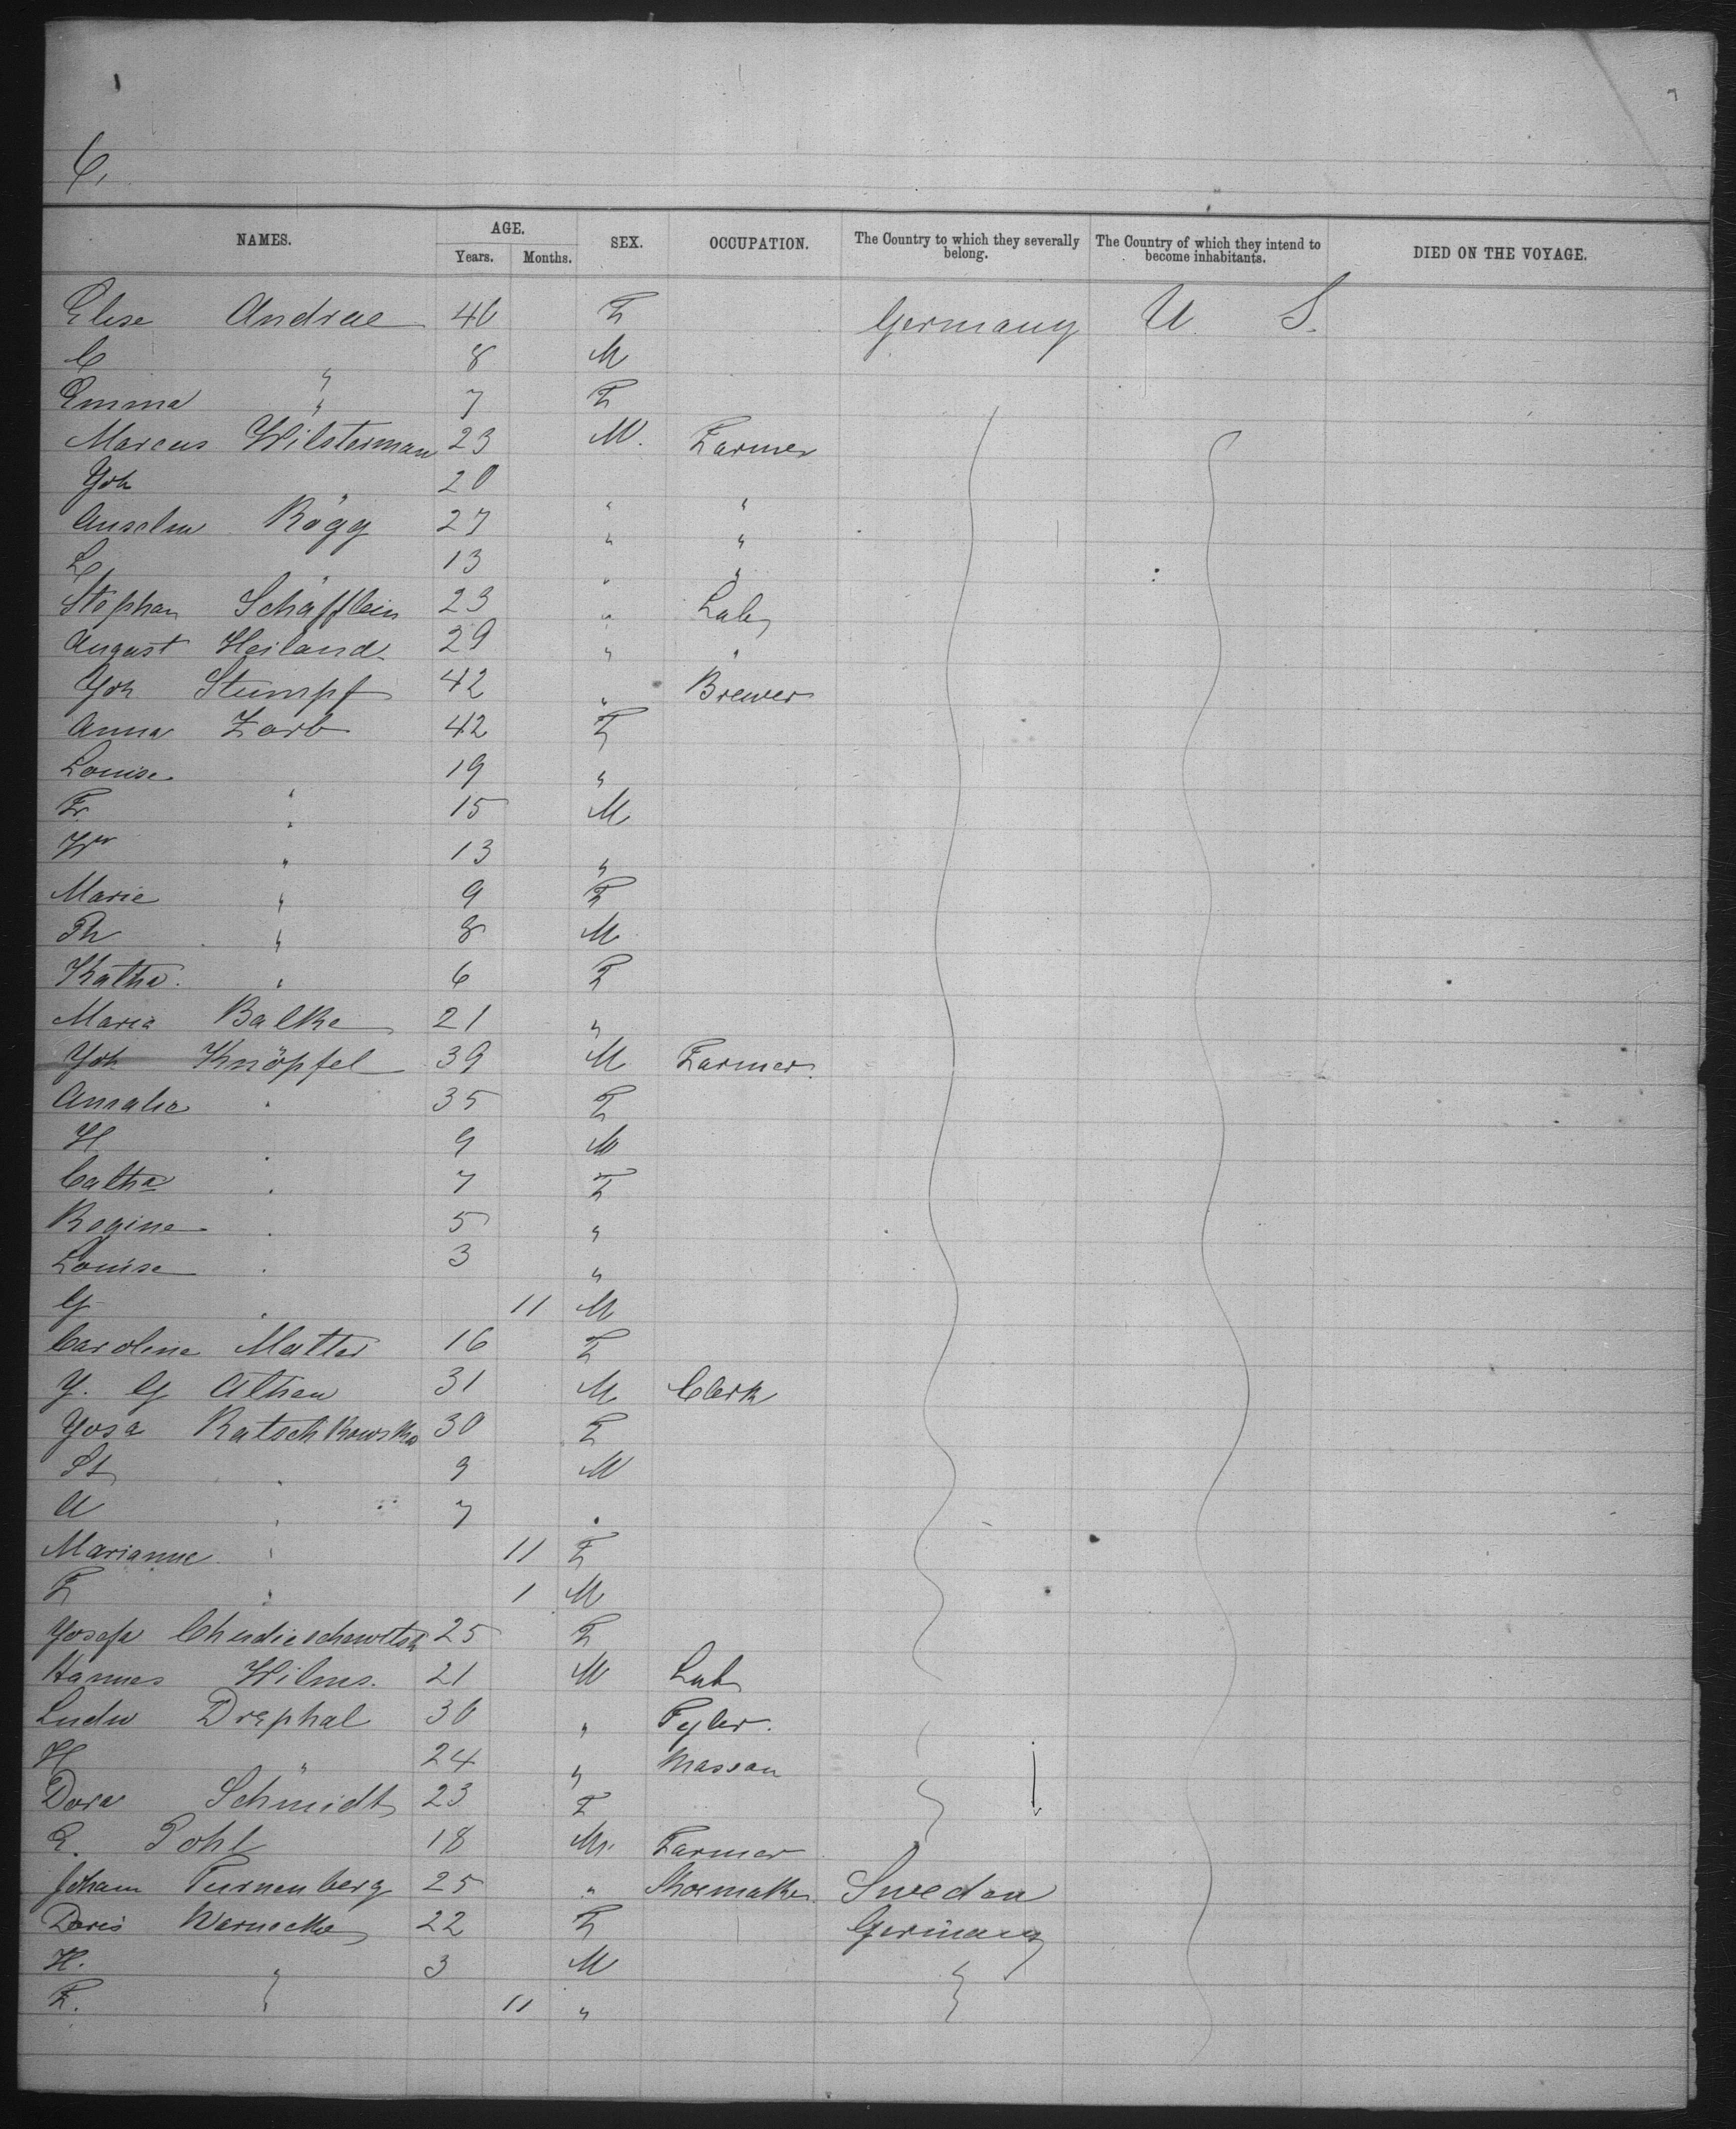 6,
NAMES. AGE. Years. Months. SEX. OCCUPATION. The Country to which they severally belong. The Country of which they intend to become inhabitants. DIED ON THE VOYAGE.
Elise Andrae 46 F Germany U. S.
C " 8 M
Emma " 7 F
Marcus Wilsterman 23 M. Farmer
Joh " 20 " "
Anselm Rögg 27 " "
L " 13 " "
Stephan Schäfflein 23 " Lab
August Heiland 29 " "
Joh Stumpf 42 " Brewer
Anna Zorb 42 F
Louise " 19 "
Fr " 15 M
W " 13 "
Marie " 9 F
Ph " 8 M
Katha. " 6 F
Maria Balke 21 "
Joh Knöpfel 39 M Farmer.
Amalie " 35 F
H " 9 M
Catha " 7 F
Regine " 5 "
Louise " 3 "
G " 11 M
Caroline Matter 16 F
J. G Althen 31 M Clerk
Josa Ratschkowska 30 F
St " 9 M
A " 7 "
Marianne " 11 F
F " 1 M
Josefa 25 F
Hannes Wilms. 21 M Lab
Ludw Drephal 30 " Tyler.
H " 24 " Massan
Dora Schmidt 23 F
E. Pohl 18 M. Farmer
Joham Turnenberg 25 " Shoemaker. Sweden
Doris Warnecke 22 F Germany
H. " 3 M "
F. " 11 " "